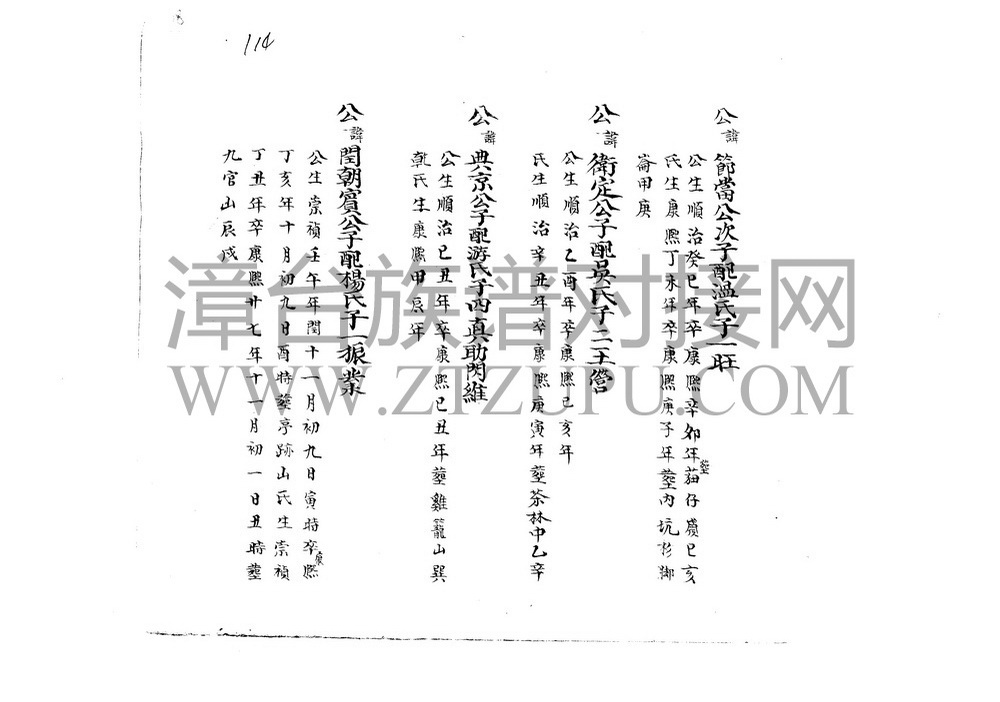 114
公諱節當公次子配溫氏子一旺
公生順治癸巳年卒康熙辛卯年葬䒥仔嶺巳亥
氏生康熙丁未年卒康熙庚子年葬內坑杉脚
崙甲庚
公諱衛定公子配吳氏子二王營
公生順治乙酉年卒康熙己亥年
氏生順治辛丑年卒康熙庚寅年葬茶林中乙辛
公諱典京公子配游氏子四真助閃維
公生順治己丑年卒康熙己丑年葬雞籠山巽
乾氏生康熙甲辰年
公諱閏朝賓公子配楊氏子一振業
公生崇禎壬午年閏十一月初九日寅時卒康熙
丁亥年十月初九日酉時葬亭跡山氏生崇禎
丁丑年卒康熙廿七年十一月初一日丑時葬
九官山辰戍
漳台族谱对接网
WWW.ZTZUPU.COM